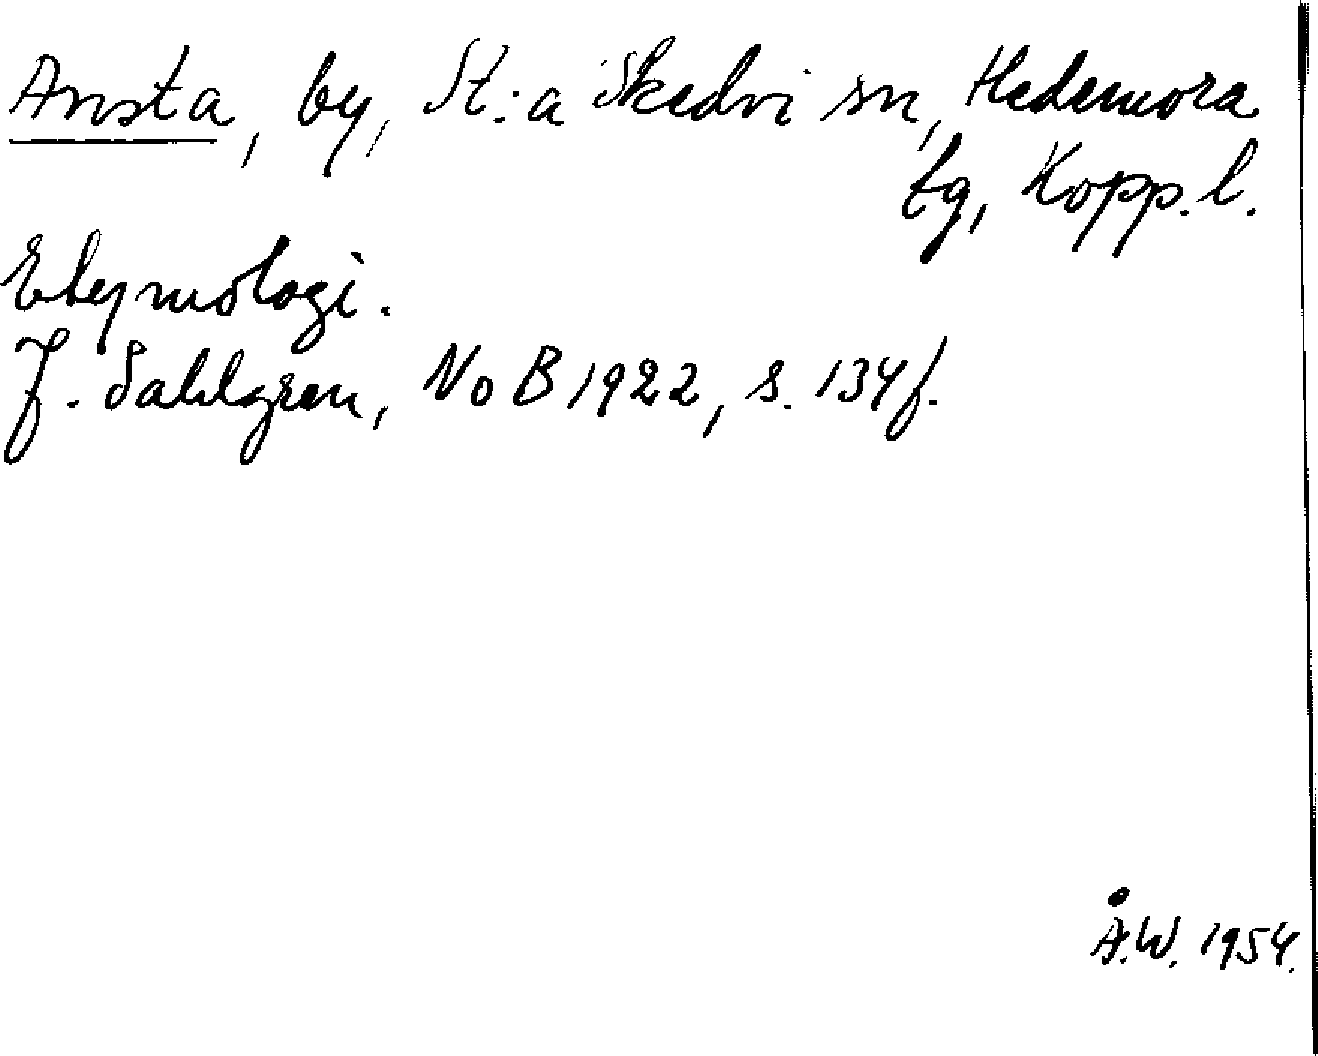 Ansta, by, St:a Skedvi sn, Hedemora
tg, Kopp.l.
Etymologi.
J. Sahlgren, NoB 1922, s. 134f.
Å.W. 1954.